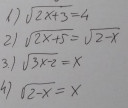 1) √2x+3 = 4
2) √2x+5 = √2-x
3.) √3x-2 = x
4) √2-x = x